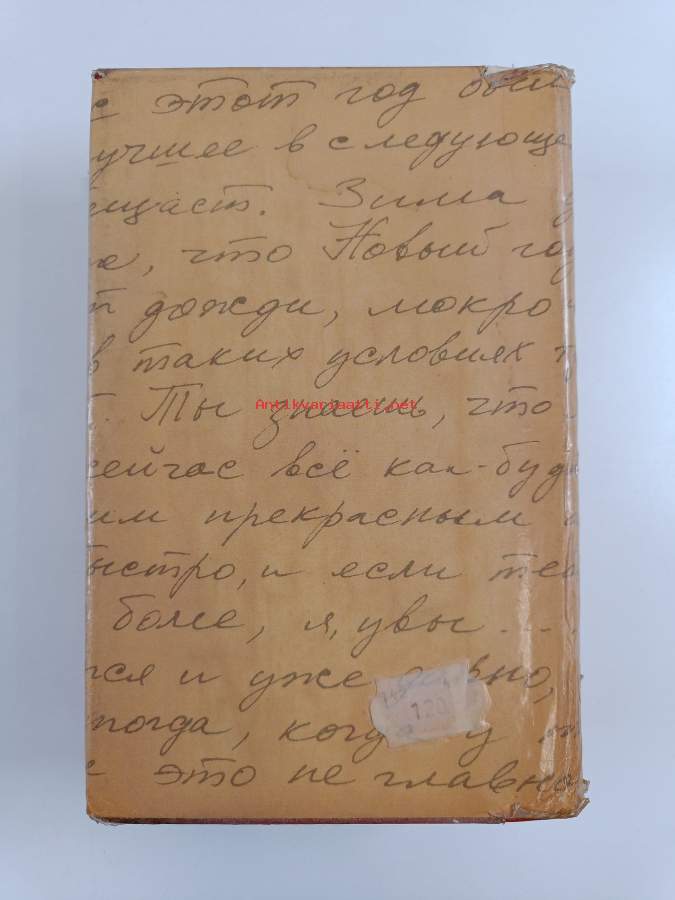 этот год был
учшее в следующе
Зима
, что Новый го
дожди, мокро
в таких условиях
Ты знаешь, что
сейчас всё как-буд
им прекрасным
ыстро, и если теб
более, я, увы...
тся и уже давно,
когда, когд у
это не главно
Antikvariaatti.net
120